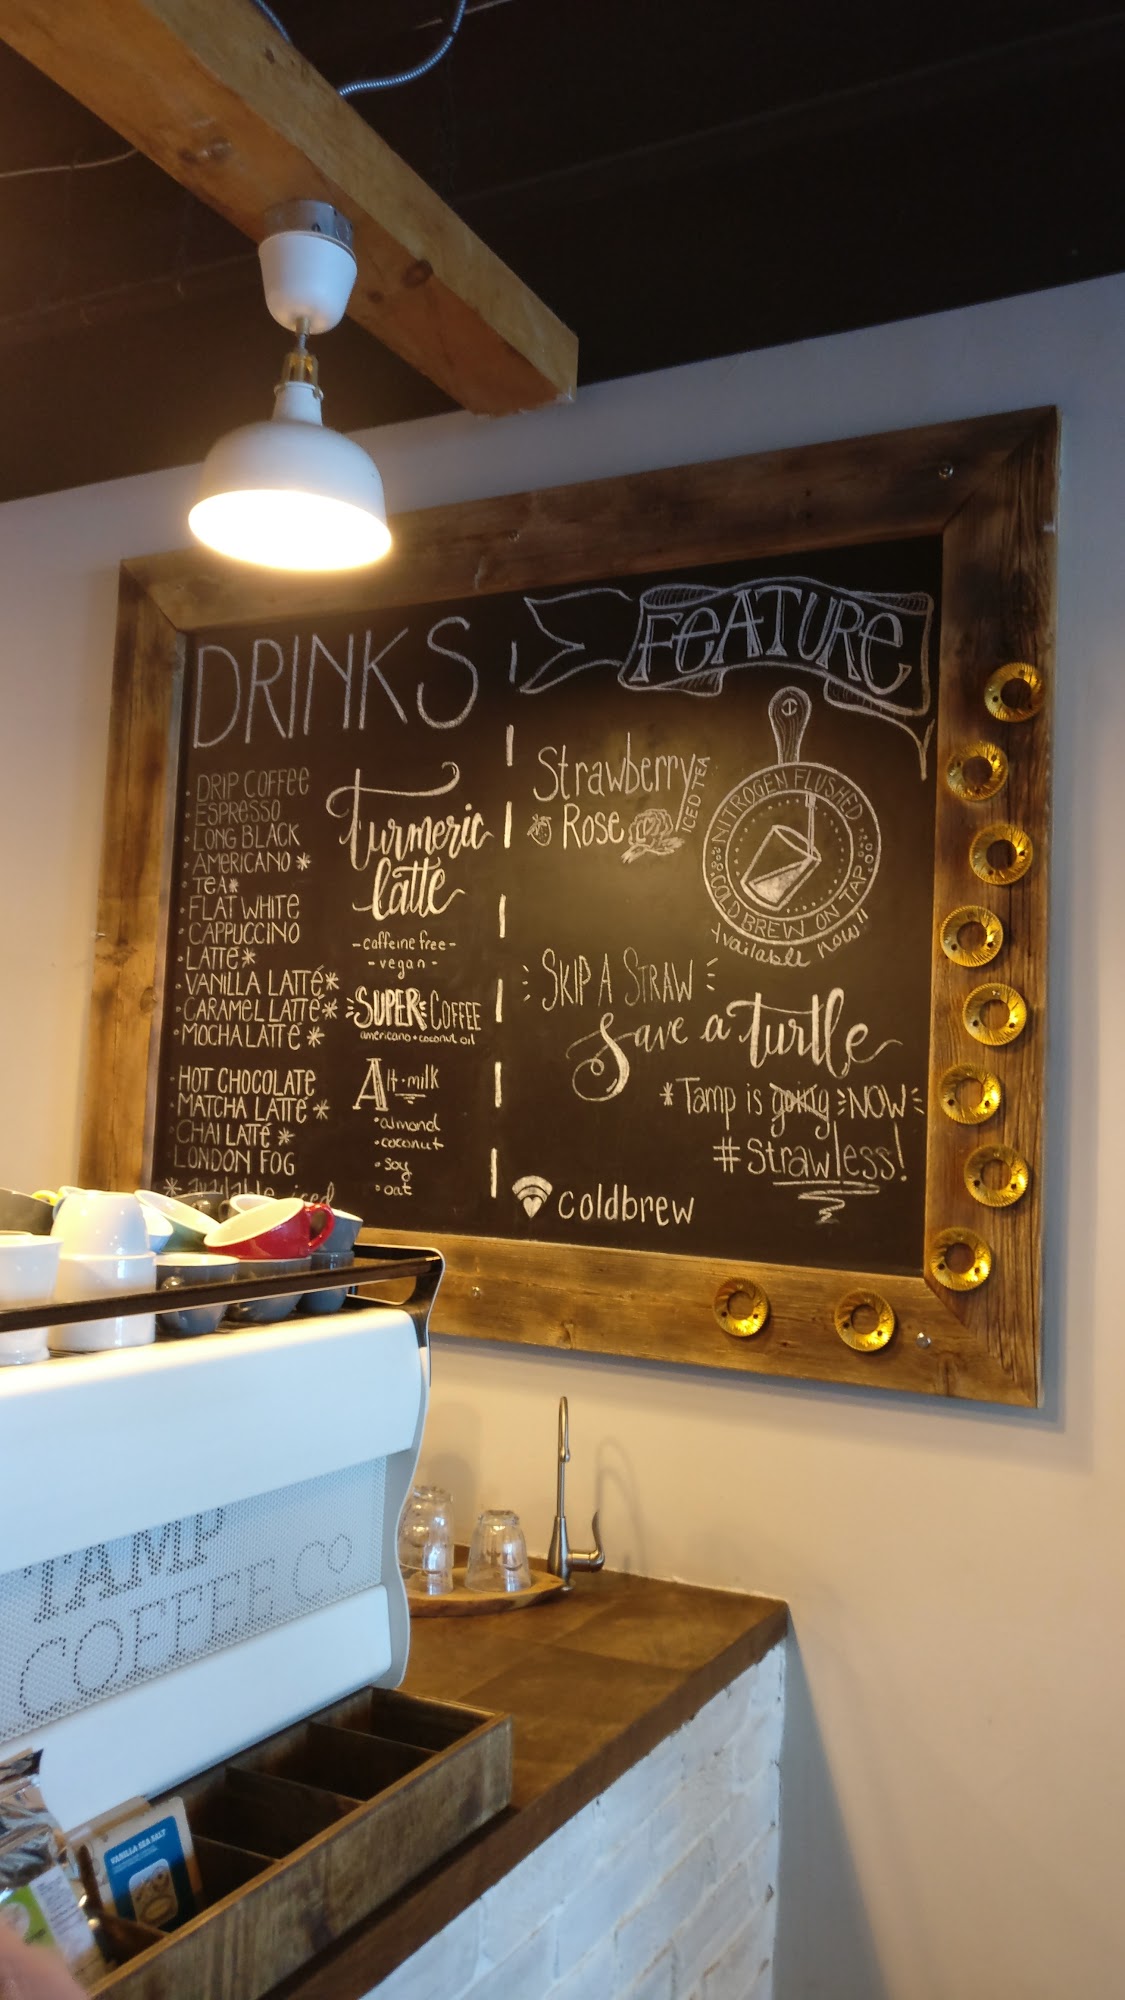 DRINKS
· DRIP COFFEE
· ESPRESSO
· LONG BLACK
· AMERICANO *
· TEA*
· FLAT WHITE
· CAPPUCCINO
· LATTE*
· VANILLA LATTÉ*
· CARAMEL LATTÉ*
· MOCHA LATTÉ *
· HOT CHOCOLATE
· MATCHA LATTÉ *
· CHAI LATTÉ *
· LONDON FOG
* available iced
turmeric
latte
- caffeine free -
- vegan -
SUPER COFFEE
americano + coconut oil
Alt-milk
• almond
• coconut
• soy
• oat
FeATURe
Strawberry
Rose
ICED TEA
NITROGEN FLUSHED
COLD BREW ON TAP
Available Now!!
SKIP A STRAW
Save a turtle
* Tamp is going NOW
#Strawless!
coldbrew
TAMP
COFFEE Co
VANILLA SEA SALT